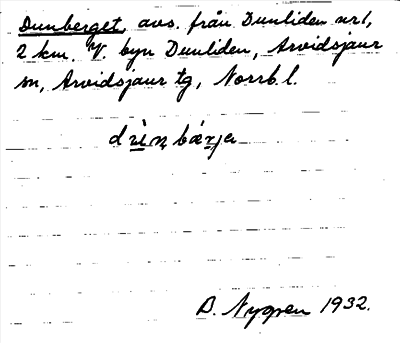 Dunberget, avs. från Dunliden nr 1,
2 km. V. byn Dunliden, Arvidsjaur
sn, Arvidsjaur tg, Norrb. l.
B. Nygren 1932.